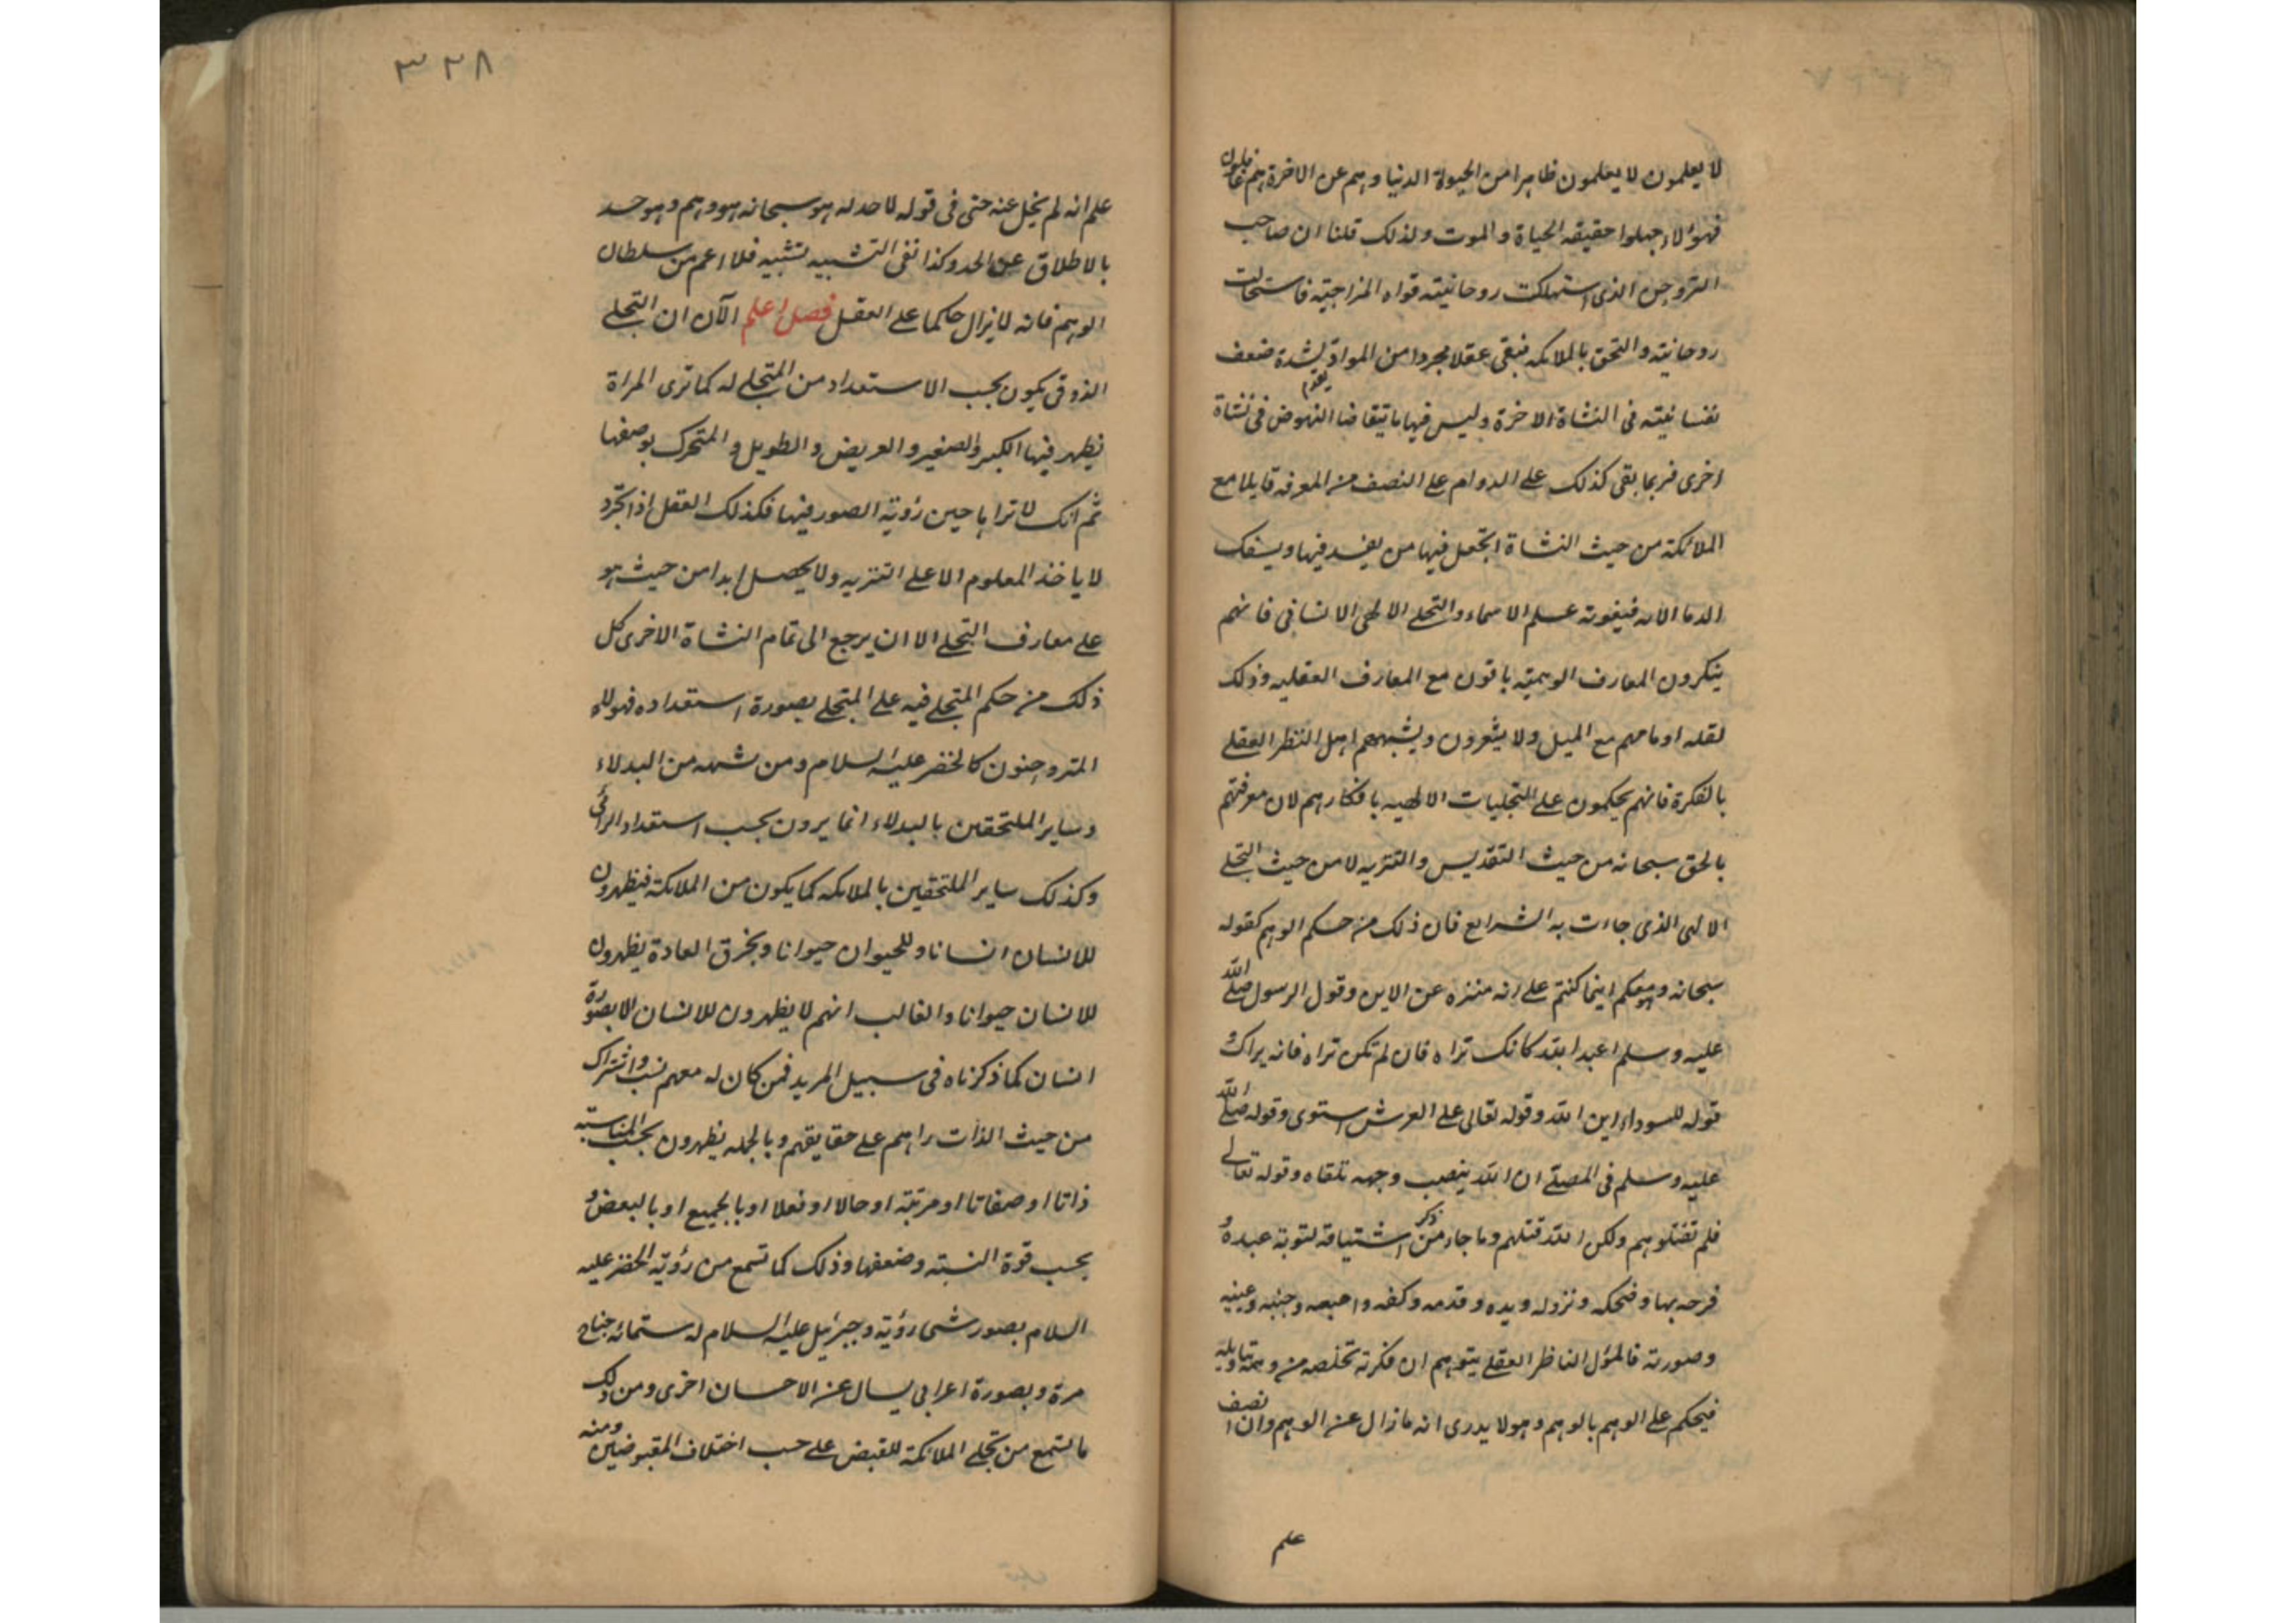 لا يعلمون لا يعلمون ظاهرا من الحيوة الدنيا وهم عن الاخرة هم غافلون
فهؤلاء جهلوا حقيقه الحياة والموت ولذلك قلنا ان صاحب
التروحن الذى استهلكت روحانيته قواه المزاجيته فاستحالت
روحانيته والتحق بالملائكه فبقى عقلا مجردا من المواد لشدة ضعف
نفسانيته فى النشاة الاخرة وليس فيها ما يتقاضا النهوض فى نشاة
اخرى فربما بقى كذلك على الدوام على النصف من المعرفه قايلا مع
الملائكة من حيث النشاة اتجعل فيها من يفسد فيها ويسفك
الدما الايه فيفوته علم الاسماء والتجلى الالهى الانسانى فانهم
ينكرون المعارف الوهميته باقون مع المعارف العقليه وذلك
لقله اوهامهم مع الميل ولا يشعرون ويشبههم اهل النظر العقلى
بالفكرة فانهم يحكمون على التجليات الالهيه بافكارهم لان معرفتهم
بالحق سبحانه من حيث التقديس والتنزيه لا من حيث التجلى
الالهى الذى جاءت به الشرايع فان ذلك من حكم الوهم كقوله
سبحانه وهو معكم اينما كنتم على انه منزه عن الاين وقول الرسول صلى الله
عليه وسلم اعبد الله كانك تراه فان لم تكن تراه فانه يراك و
قوله للسوداء اين الله وقوله تعالى على العرش استوى وقوله صلى الله
عليه وسلم فى المصلى ان الله ينصب وجهه تلقاه وقوله تعالى
فلم تقتلوهم ولكن الله قتلهم وما جاء من ذكر اشتياقه لتوبة عبده و
فرحه بها وضحكه ونزوله ويده وقدمه وكفه واصبعه وجنبه وعينيه
وصورته فالمؤل الناظر العقلى يتوهم ان فكرته تخلصه من وهمه بتاويله
فيحكم على الوهم بالوهم وهو لا يدرى انه ما زال عن الوهم وان انصف
علم
٣٣٨
علم انه لم يخل عنه حتى فى قوله لا حد له هو سبحانه هو وهم وهو حد
بالاطلاق عن الحد وكذا نفى التشبيه تشبيه فلا اعم من سلطان
الوهم فانه لا يزال حاكما على العقل فصل اعلم الآن ان التجلى
الذوقى يكون بحسب الاستعداد من المتجلى له كما ترى المراة
يظهر فيها الكبير والصغير والعريض والطويل والمتحرك بوصفها
ثم انك لا تراها حين رؤية الصور فيها فكذلك العقل اذا تجرد
لا ياخذ المعلوم الا على التنزيه ولا يحصل ابدا من حيث هو
على معارف التجلى الا ان يرجع الى تمام النشاة الاخرى كل
ذلك من حكم المتجلى فيه على المتجلى بصورة استعداده فهولاء
المتروحنون كالخضر عليه السلام ومن شبهه من البدلاء
وساير الملتحقين بالبدلاء انما يرون بحسب استعداد الرائى
وكذلك ساير الملتحقين بالملائكه كما يكون من الملائكة فيظهرون
للانسان انسانا وللحيوان حيوانا وبخرق العادة يظهرون
للانسان حيوانا والغالب انهم لا يظهرون للانسان الا بصورة
انسان كما ذكرناه فى سبيل المريد فمن كان له معهم نسب واشتراك
من حيث الذات راهم على حقايقهم وبالجمله يظهرون بحسب المناسبة
ذاتا او صفاتا او مرتبة او حالا او فعلا او بالجميع او بالبعض و
بحسب قوة النسبته وضعفها وذلك كما تسمع من رؤية الخضر عليه
السلام بصور شتى رؤية وجبرئيل عليه السلام له ستمائه جناح
مرة وبصورة اعرابى يسال عن الاحسان اخرى ومن ذلك
ما تسمع من تجلى الملائكة للقبض على حسب اختلاف المقبوضين ومنه